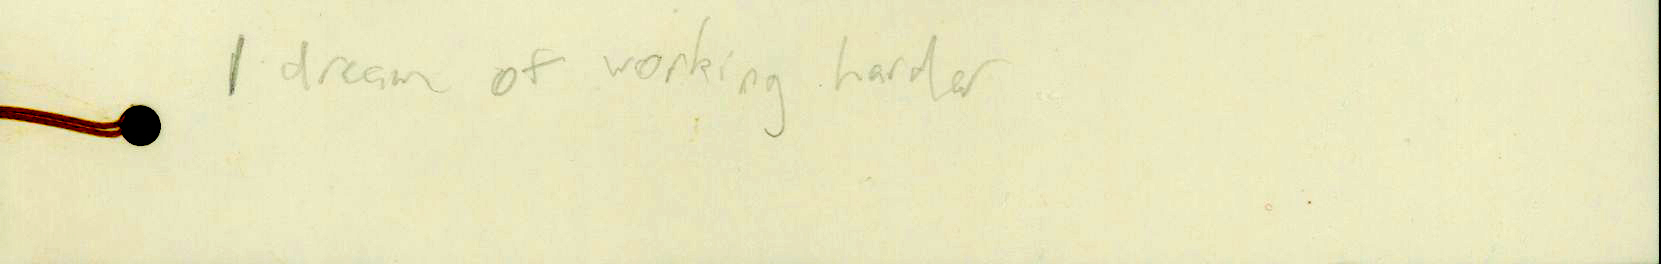 I dream of working harder